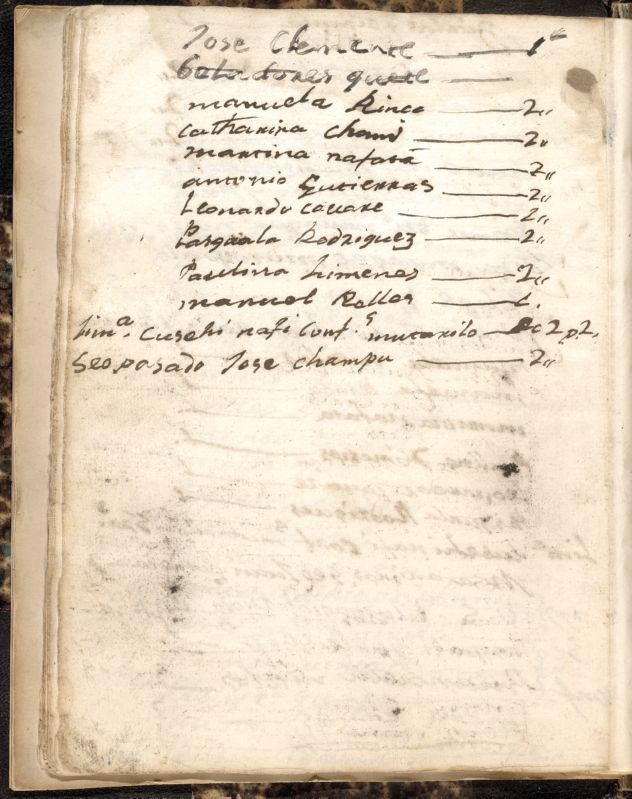 Jose Clemente — 1
botadores
manuela Rinco — 2,,
Catharina Chami — 2,,
martina nafara — 2,,
antonio Gutierras — 2,,
Leonardo cavare — 2,,
Pasquala Rodriguez — 2,,
Paulina Limenes — 2,,
manuel Rolles —
Lima. Cusehi Conf.s mucarilo — 2 p 2,
Seo pasado Jose Champu — 2,,